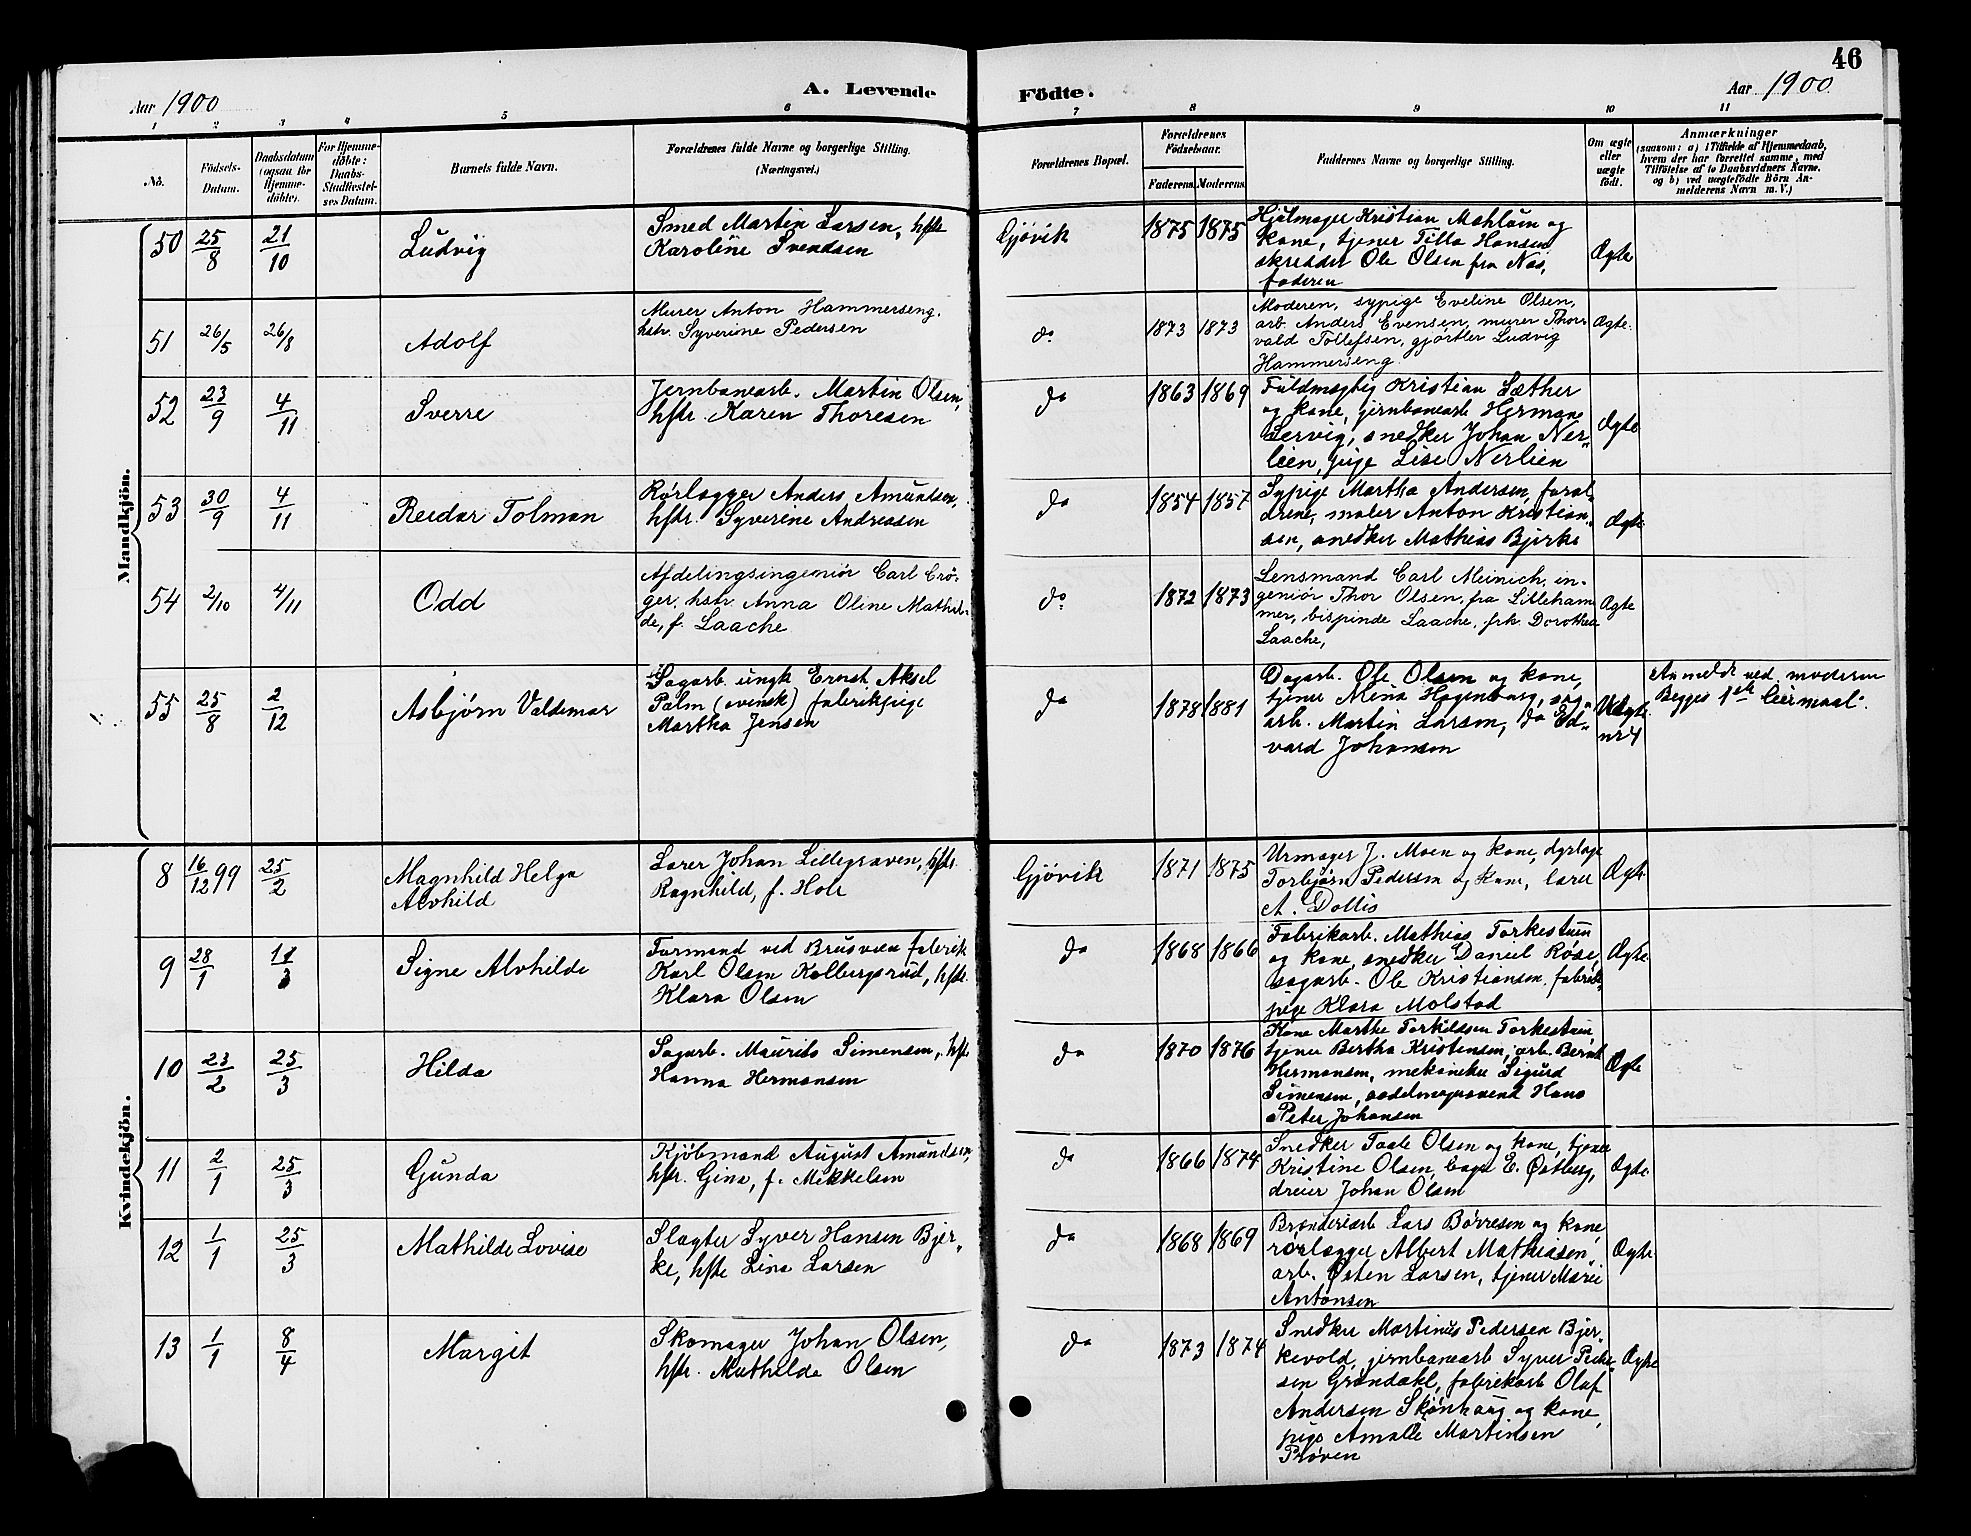 46
Aar 1900
A. Levende Födte.
Aar 1900
1 2 3 4 5 6 7 8 9 10 11
No.
Födsels-
Datum.
Daabsdatum
(ogsaa for
Hjemme-
döbte).
For Hjemme-
döbte:
Daabs-
Stadfæstel-
ses Datum.
Barnets fulde Navn.
Forældrenes fulde Navne og borgerlige Stilling.
(Næringsvei.)
Forældrenes Bopæl.
Forældrenes
Födselsaar.
Faderens. Moderens.
Faddernes Navne og borgerlige Stilling.
Om ægte
eller
uægte
födt.
Anmærkninger
(saasom: a) i Tilfælde af Hjemmedaab,
hvem der har forrettet samme, med
Tilföielse af to Daabsvidners Navne.
og b) ved uægtefödte Börn An-
melderens Navn m. V.)
Mandkjön.
50 25/8 21/10
Ludvig
Smed Martin Larsen, hstr.
Karoline Svendsen
Gjøvik
1875 1875
Hjulmager Kristian Mæhlum og
kone, tjener Tilla Hansen
skrædder Ole Olsen fra Næs,
faderen
Ægte
51 26/5 26/8
Adolf
Murer Anton Hammerseng,
hstr. Syverine Pedersen
do.
1873 1873
Moderen, sypige Eveline Olsen,
arb. Anders Evensen, murer Thor-
vald Tollefsen, gjørtler Ludvig
Hammerseng
Ægte.
52 23/9 4/11
Sverre
Jernbanearb. Martin Olsen,
hstr. Karen Thoresen
do
1863 1869
Fuldmægtig Kristian Sæther
og kone, jernbanearb Herman
Lervig, snedker Johan Ner-
lien, pige Lise Nerlien
Ægte
53 30/9 4/11
Reidar Tolman
Rørlægger Anders Amundsen,
hstr. Syverine Andreasen
do
1854 1857
Sypige Martha Andersen, foræl-
drene, maler Anton Kristian-
sen, snedker Mathias Bjerke
Ægte
54 2/10 4/11
Odd
Afdelingsingeniør Carl Crö-
ger, hstr. Anna Oline Mathil-
de, f. Laache
do.
1872 1873
Lensmand Carl Meinich, in-
geniør Thor Olsen, fra Lilleham-
mer, bispinde Laache, frk. Dorothea
Laache,
Ægte
55 25/8 2/12
Asbjørn Valdemar
Sagarb. ungk Ernst Aksel
Palm (svensk) fabrikpige
Martha Jensen
do
1878 1881
Dagarb. Ole Olsen og kone,
tjener Mina Hagenburg, sag-
arb. Martin Larsen, do Ed-
vard Johansen
Uægte
nr 4
Anmeldt ved moderen
Begges 1ste leiermaal.
Kvindekjön.
8 16/12 99 25/2
Magnhild Helga
Alvhild
Lærer Johan Lillegraven, hstr.
Ragnhild, f. Hole
Gjøvik
1871 1875
Urmager J. Moen og kone, dyrlæge
Torbjørn Pedersen og kone, lærer
A. Dollis
Ægte
9 28/1 11/3
Signe Alvhilde
Formand ved Brusven fabrik
Karl Olsen Kolbergsrud, hstr.
Klara Olsen
do
1868 1866
Fabrikarb. Mathias Torkestuen
og kone, snedker Daniel Røse,
sagarb. Ole Kristiansen, fabrik-
pige Klara Molstad
Ægte
10 23/2 25/3
Hilda
Sagarb. Maurits Simensen, hstr
Hanna Hermansen
do
1870 1876
Kone Marthe Torkildsen Torkestuen,
tjener Bertha Kristensen, arb. Bernt
Hermansen, mekaniker Sigurd
Simensen, sadelmagersvend Hans
Peter Johansen
Ægte
11 2/1 25/3
Gunda
Kjøbmand August Amundsen,
hstr. Gina, f. Mikkelsen
do
1866 1874
Snedker Taale Olsen og kone, tjener
Kristine Olsen, bager E. Østberg,
dreier Johan Olsen
Ægte
12 1/1 25/3
Mathilde Lovise
Slagter Syver Hansen Bjer-
ke, hstr Lina Larsen
do
1868 1869
Brænderiarb Lars Børresen og kone
rørlægger Albert Mathiasen,
arb. Østen Larsen, tjener Marie
Antonsen
Ægte
13 1/1 8/4
Margit
Skomager Johan Olsen,
hstr. Mathilde Olsen
do
1873 1874
Snedker Martinus Pedersen Bjer-
kevold, jernbanearb Syver Peder-
sen Grøndahl, fabrikarb Olaf
Andersen Skjønhaug og kone,
pige Amalie Martinsen
Prøven
Ægte